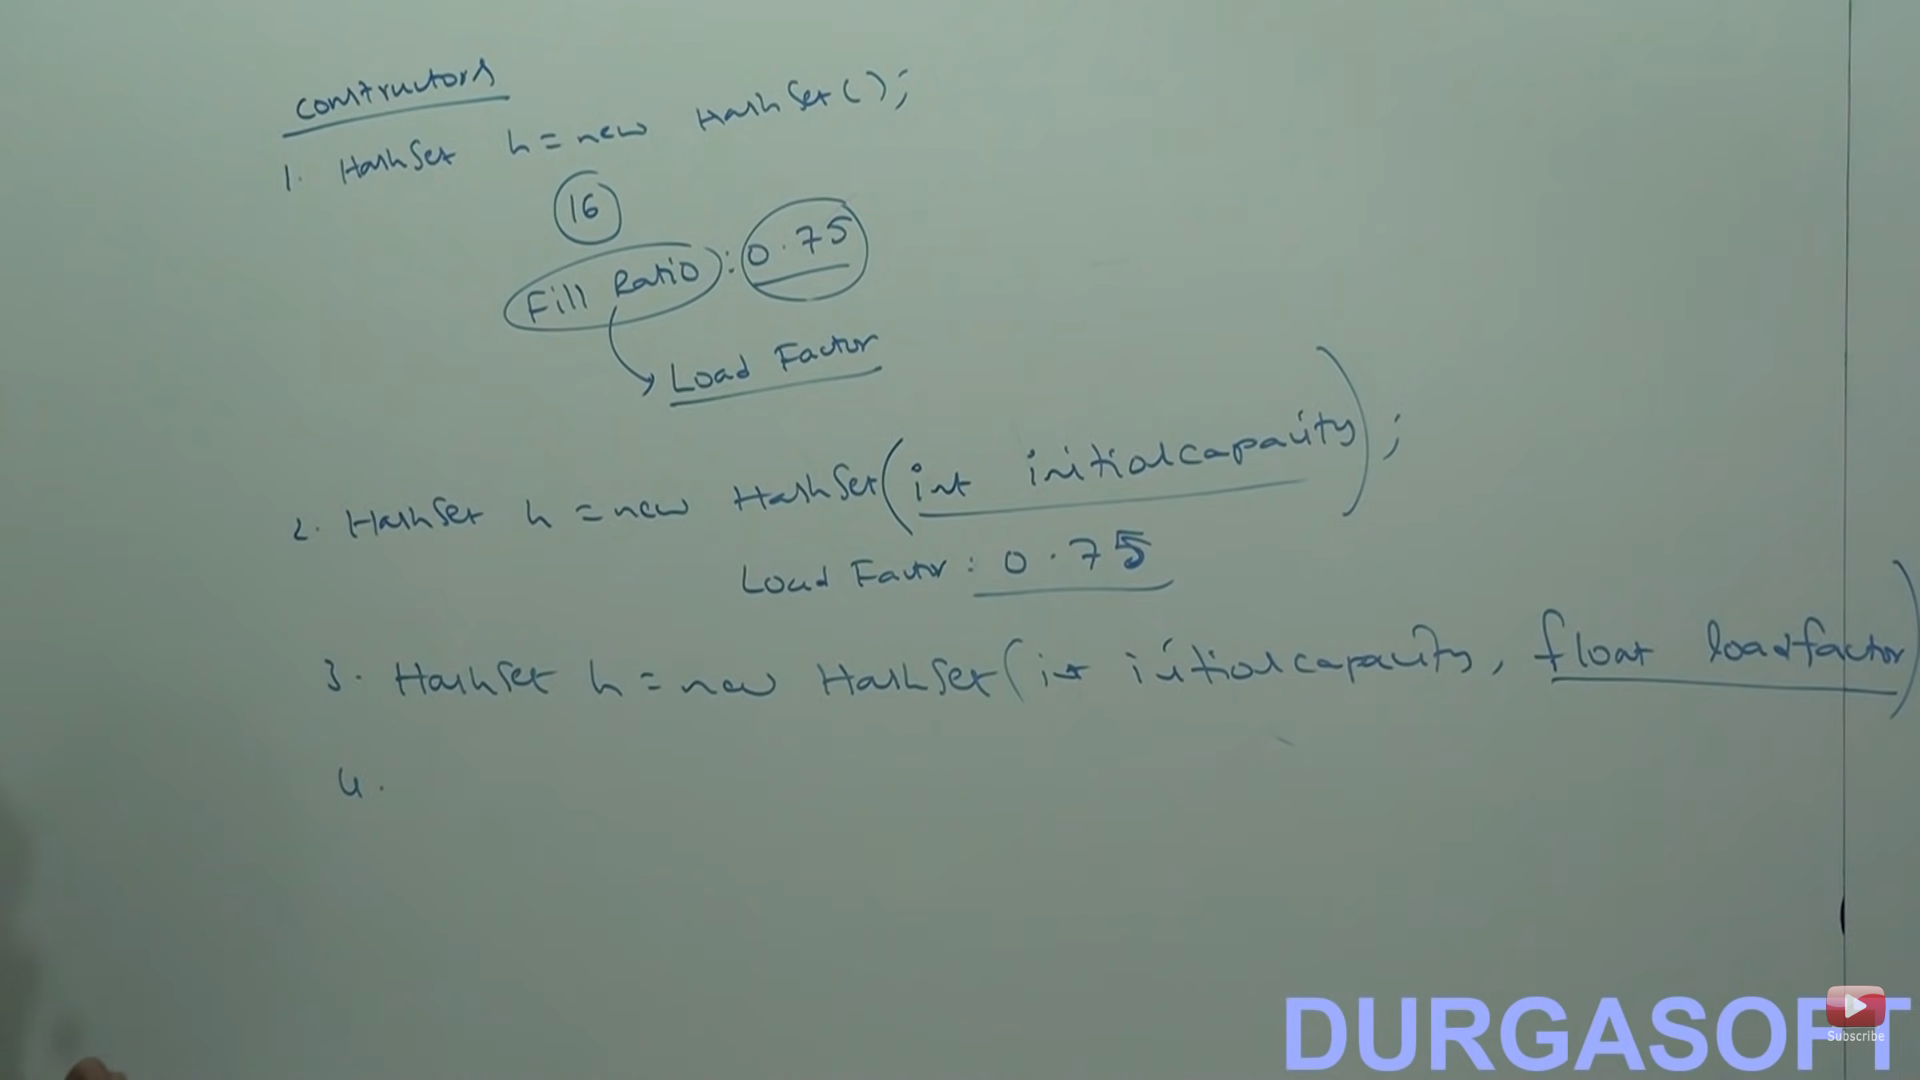 constructors
1. HashSet h = new HashSet();
16
Fill Ratio : 0.75
Load Factor
2. HashSet h = new HashSet(int initialcapacity);
Load Factor : 0.75
3. HashSet h = new HashSet(int initialcapacity, float loadfactor)
4.
DURGASOFT
Subscribe